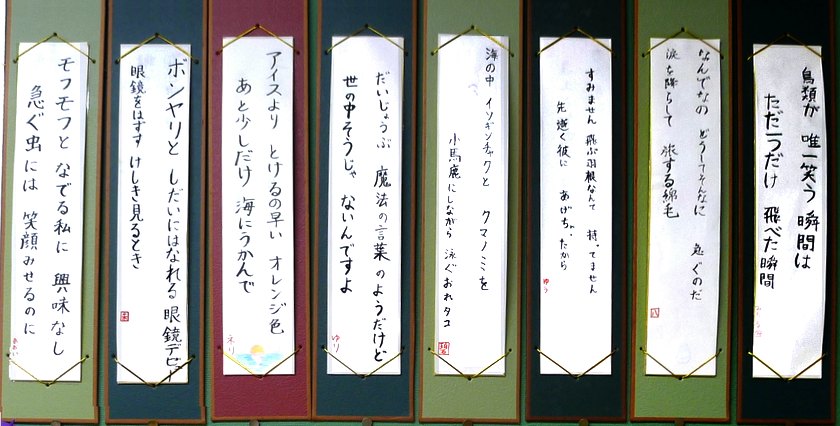 鳥類が 唯一笑う 瞬間は
ただ一つだけ 飛べた瞬間
なんでなの どうしてそんなに 急ぐのだ
涙を降らして 旅する綿毛
すみません 飛ぶ羽根なんて 持ってません
先逝く彼に あげちゃったから
ゆう
海の中 イソギンチャクと クマノミを
小馬鹿にしながら 泳ぐおれタコ
だいじょうぶ 魔法の言葉のようだけど
世の中そうじゃ ないんですよ
ゆり
アイスより とけるの早い オレンジ色
あと少しだけ 海にうかんで
ボンヤリと しだいにはなれる 眼鏡デビュー
眼鏡をはずす けしき見るとき
モフモフと なでる私に 興味なし
急ぐ虫には 笑顔みせるのに